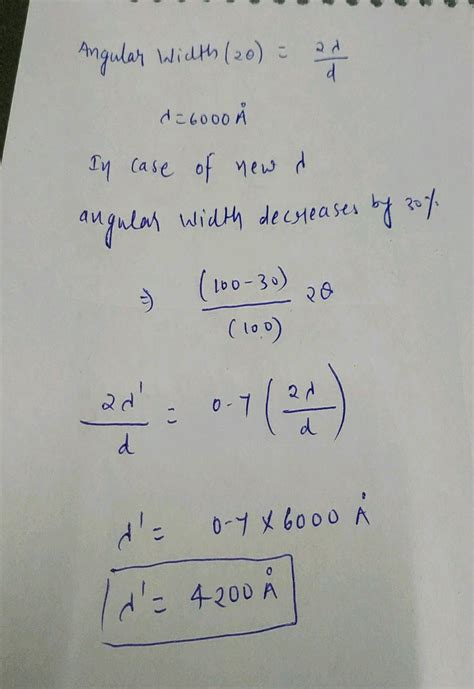 Angular Width (2θ) = 2λ/d
λ = 6000 Å
In case of new λ
angular width decreases by 30%
⇒ (100-30)/(100) 2θ
2λ'/d = 0.7 (2λ/d)
λ' = 0.7 × 6000 Å
λ' = 4200 Å